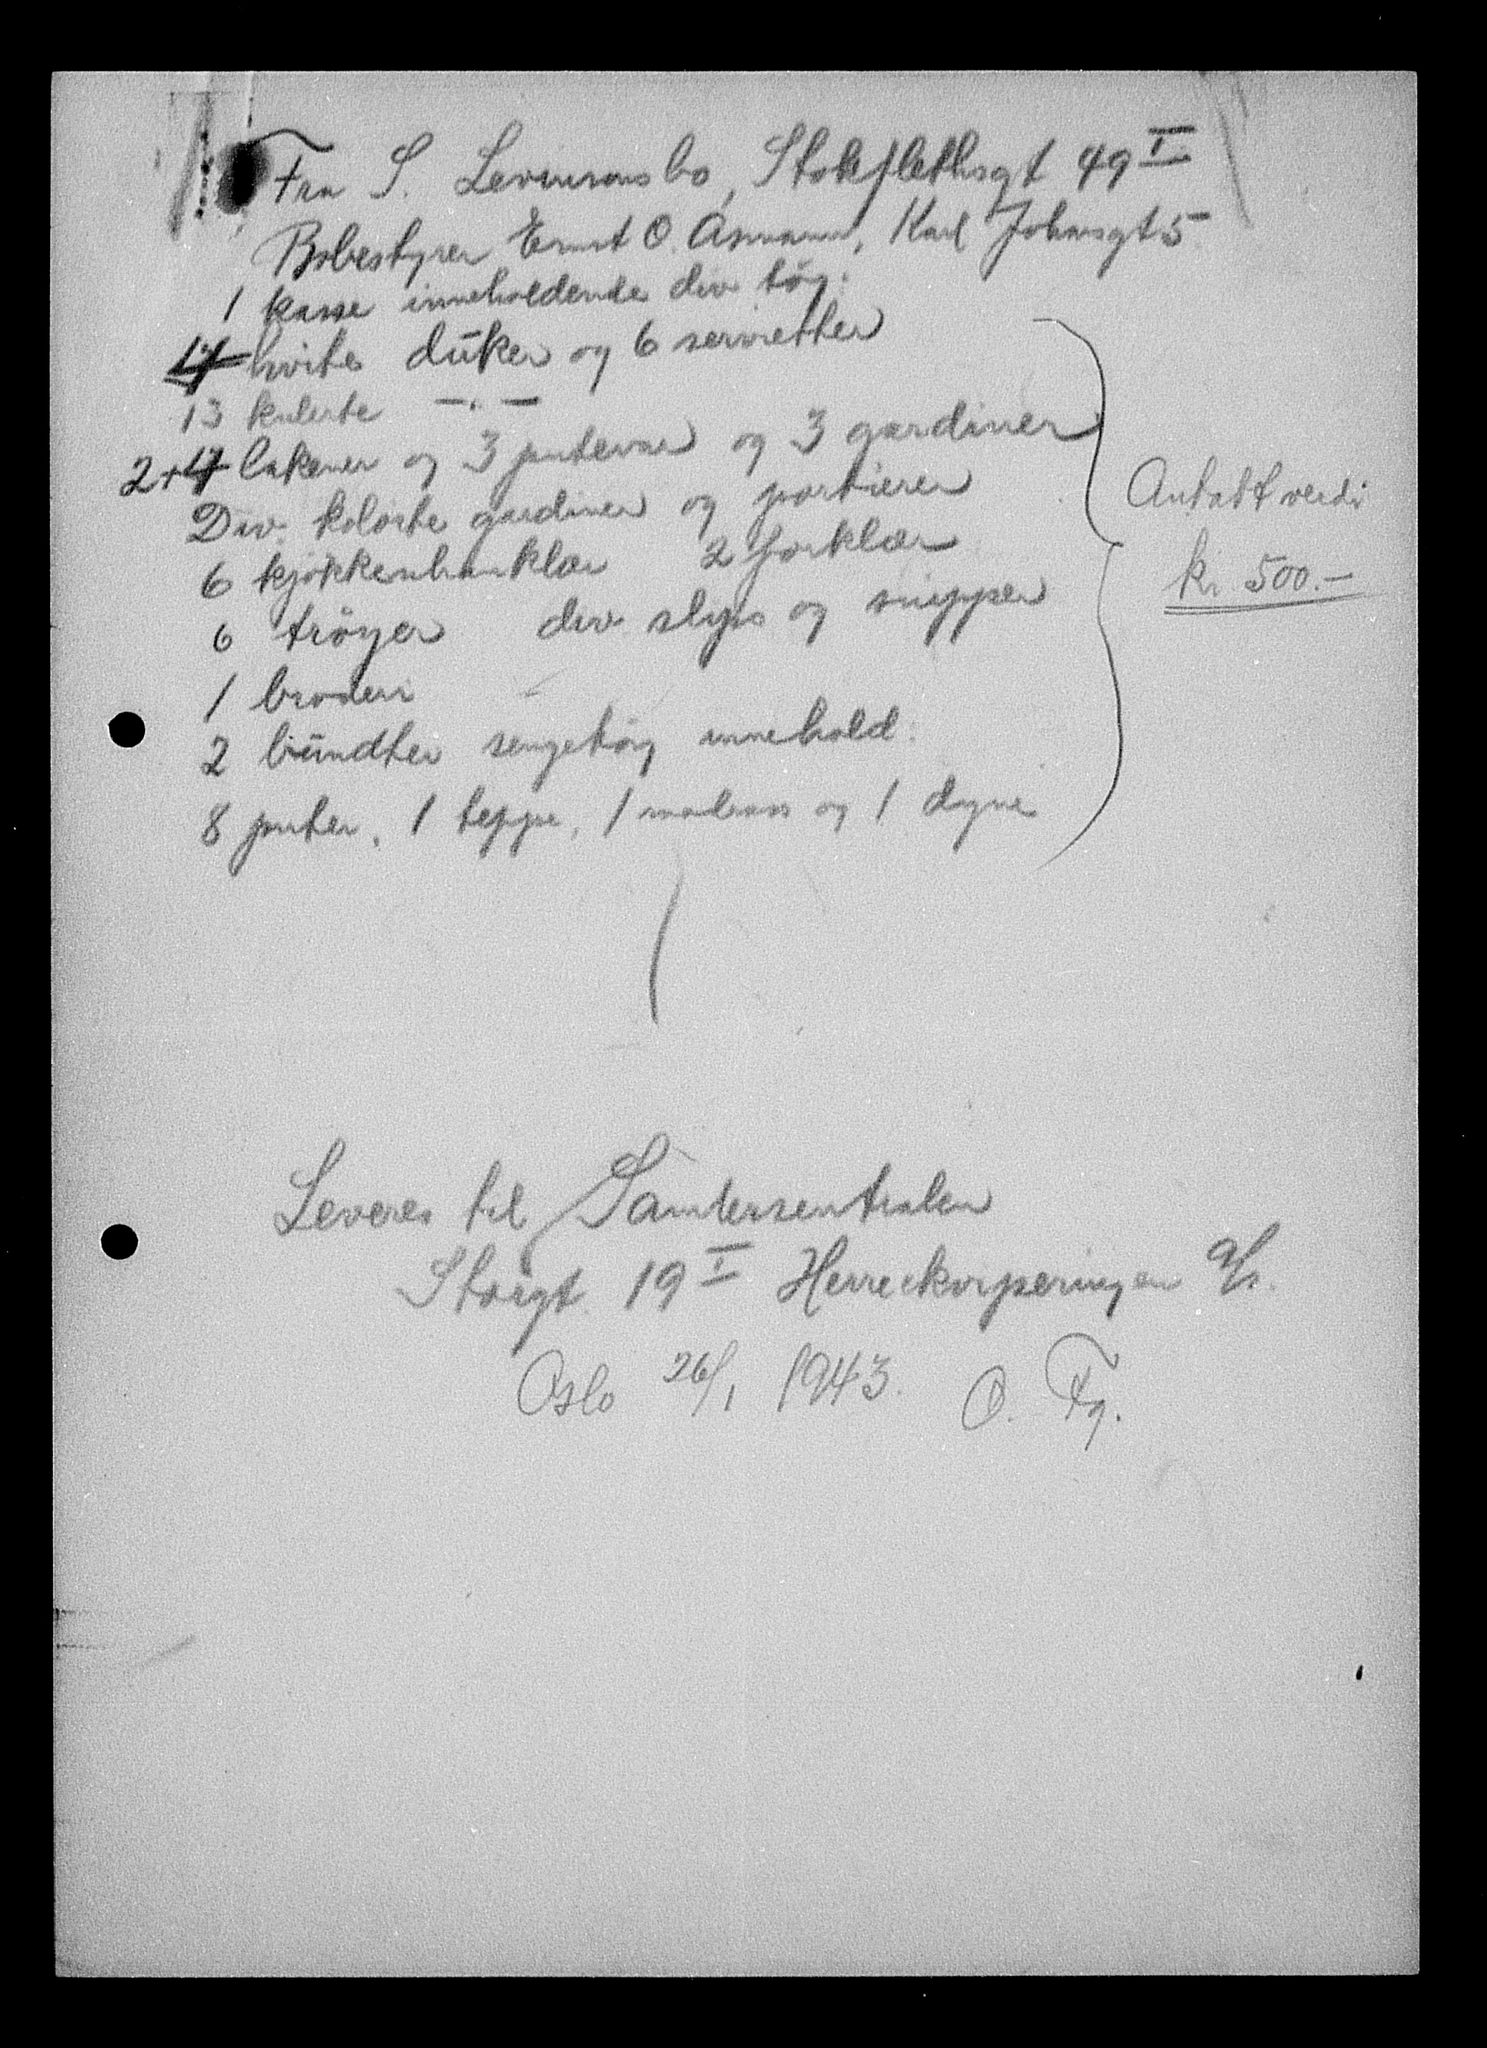 Fra S. Levinsons bo, Stokflethsgt 49 I
Bobestyrer Ernst O. Asmann, Karl Johansgt 5
1 kasse inneholdende div töy:
hvite düker og 6 servietter
13 kulerte —„—
2+4 lakener og 3 putevar og 3 gardiner
Div. kolorte gardiner og portierer
6 kjökkenhanklær 2 forklær
6 tröyer div slips og snipper
1 broderi
2 bündter sengetöy innehold:
8 puter, 1 teppe, 1 madrass og 1 dyne
Antatt verdi
kr. 500.—
Leveres til Samlersentralen
Storgt. 19 I Herreekviperingen A/s.
Oslo 26/1 1943. O. Fg.